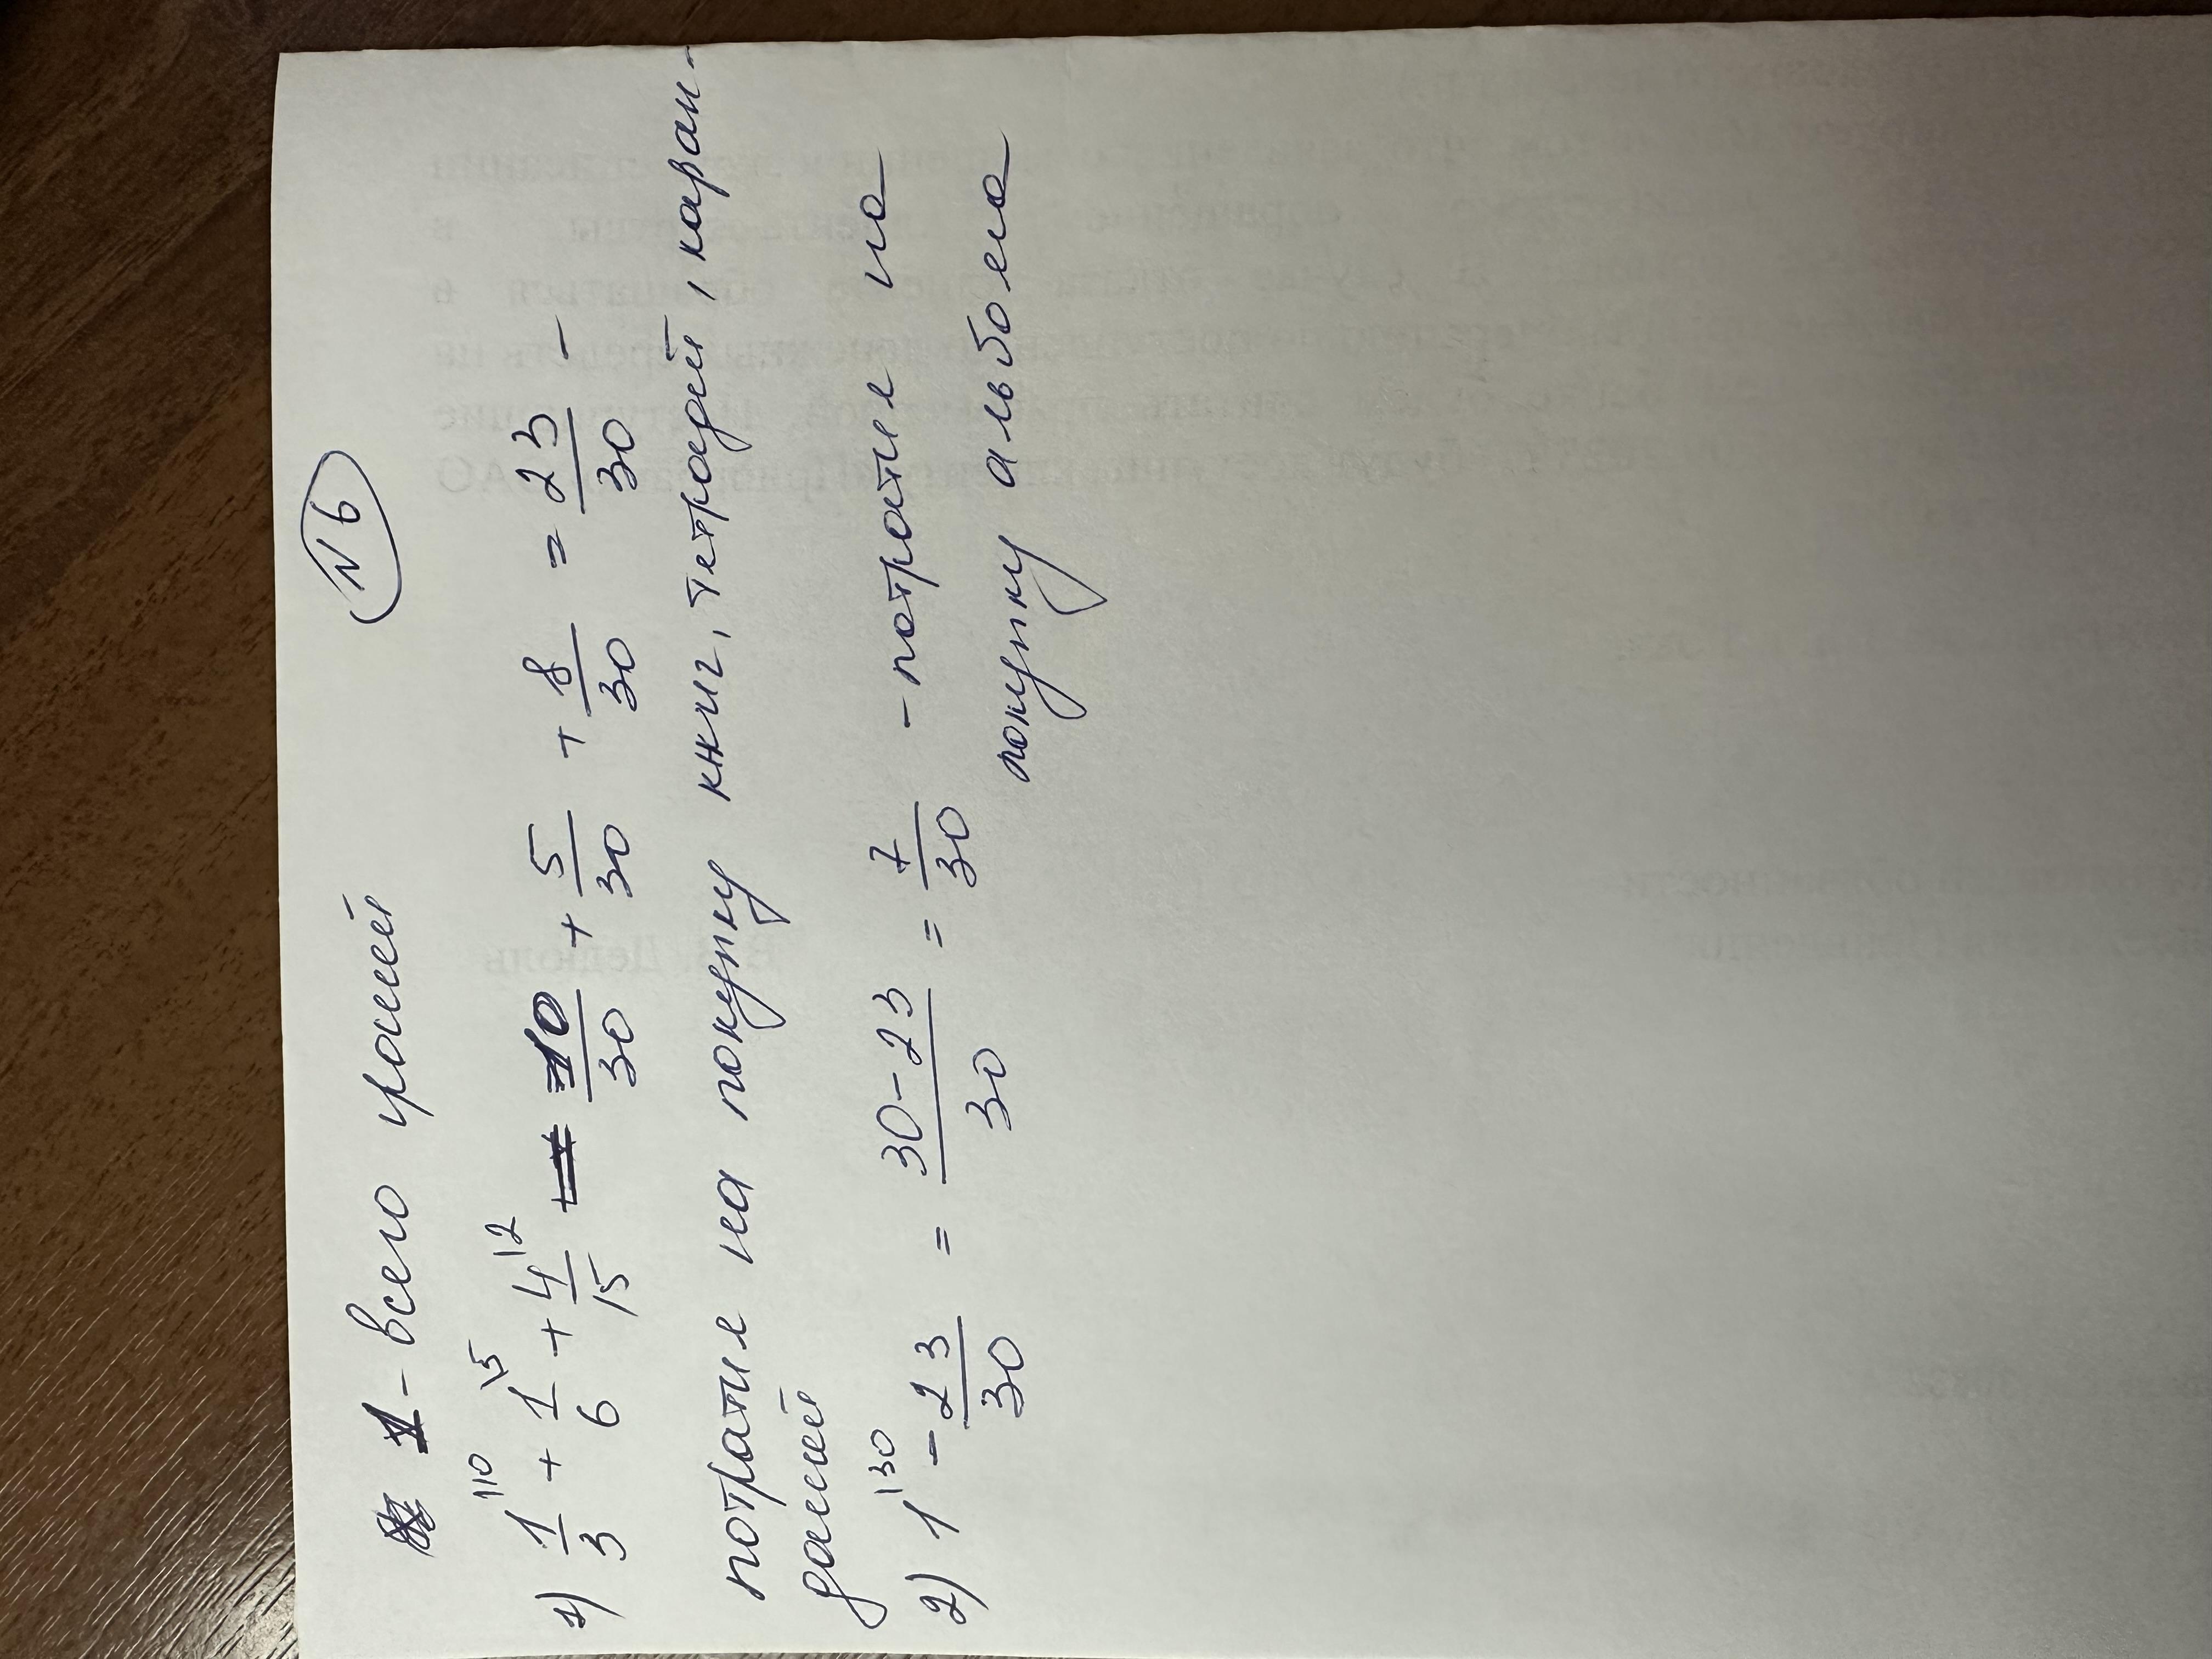 N 6
1 - всего
1) 1/3 \10 + 1/6 \5 + 4/15 \2 = 10/30 + 5/30 + 8/30 = 23/30 -
потратил на покупку книг, тетрадей, каран-
дашей
2) 1 \30 - 23/30 = 30-23/30 = 7/30 - потратил на
покупку альбома